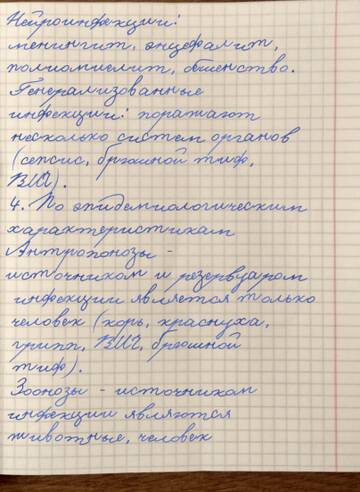 Нейроинфекции:
менингит, энцефалит,
полиомиелит, бешенство.
Генерализованные
инфекции: поражают
несколько систем органов
(сепсис, брюшной тиф,
ВИЧ).
4. По эпидемиологическим
характеристикам
Антропонозы -
источником и резервуаром
инфекции является только
человек (корь, краснуха,
грипп, ВИЧ, брюшной
тиф).
Зоонозы - источником
инфекции являются
животные, человек